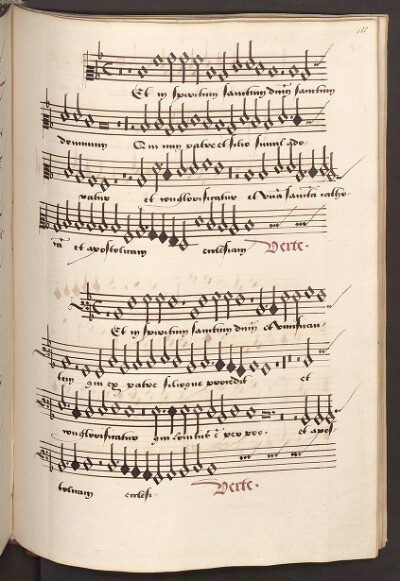 Et in spiritum sanctum dnm sanctum
dominum Qui cum patre et filio simul ado
ratur et conglorificatur et unā sanctā catho
cā et apostolicam ecclesiam Verte.
Et in spiritum sanctum dnm et vivifican
tem qui ex patre filioque procedit et
conglorificatur qui locutus ē per pro. et apos
tolicam ecclesi Verte.